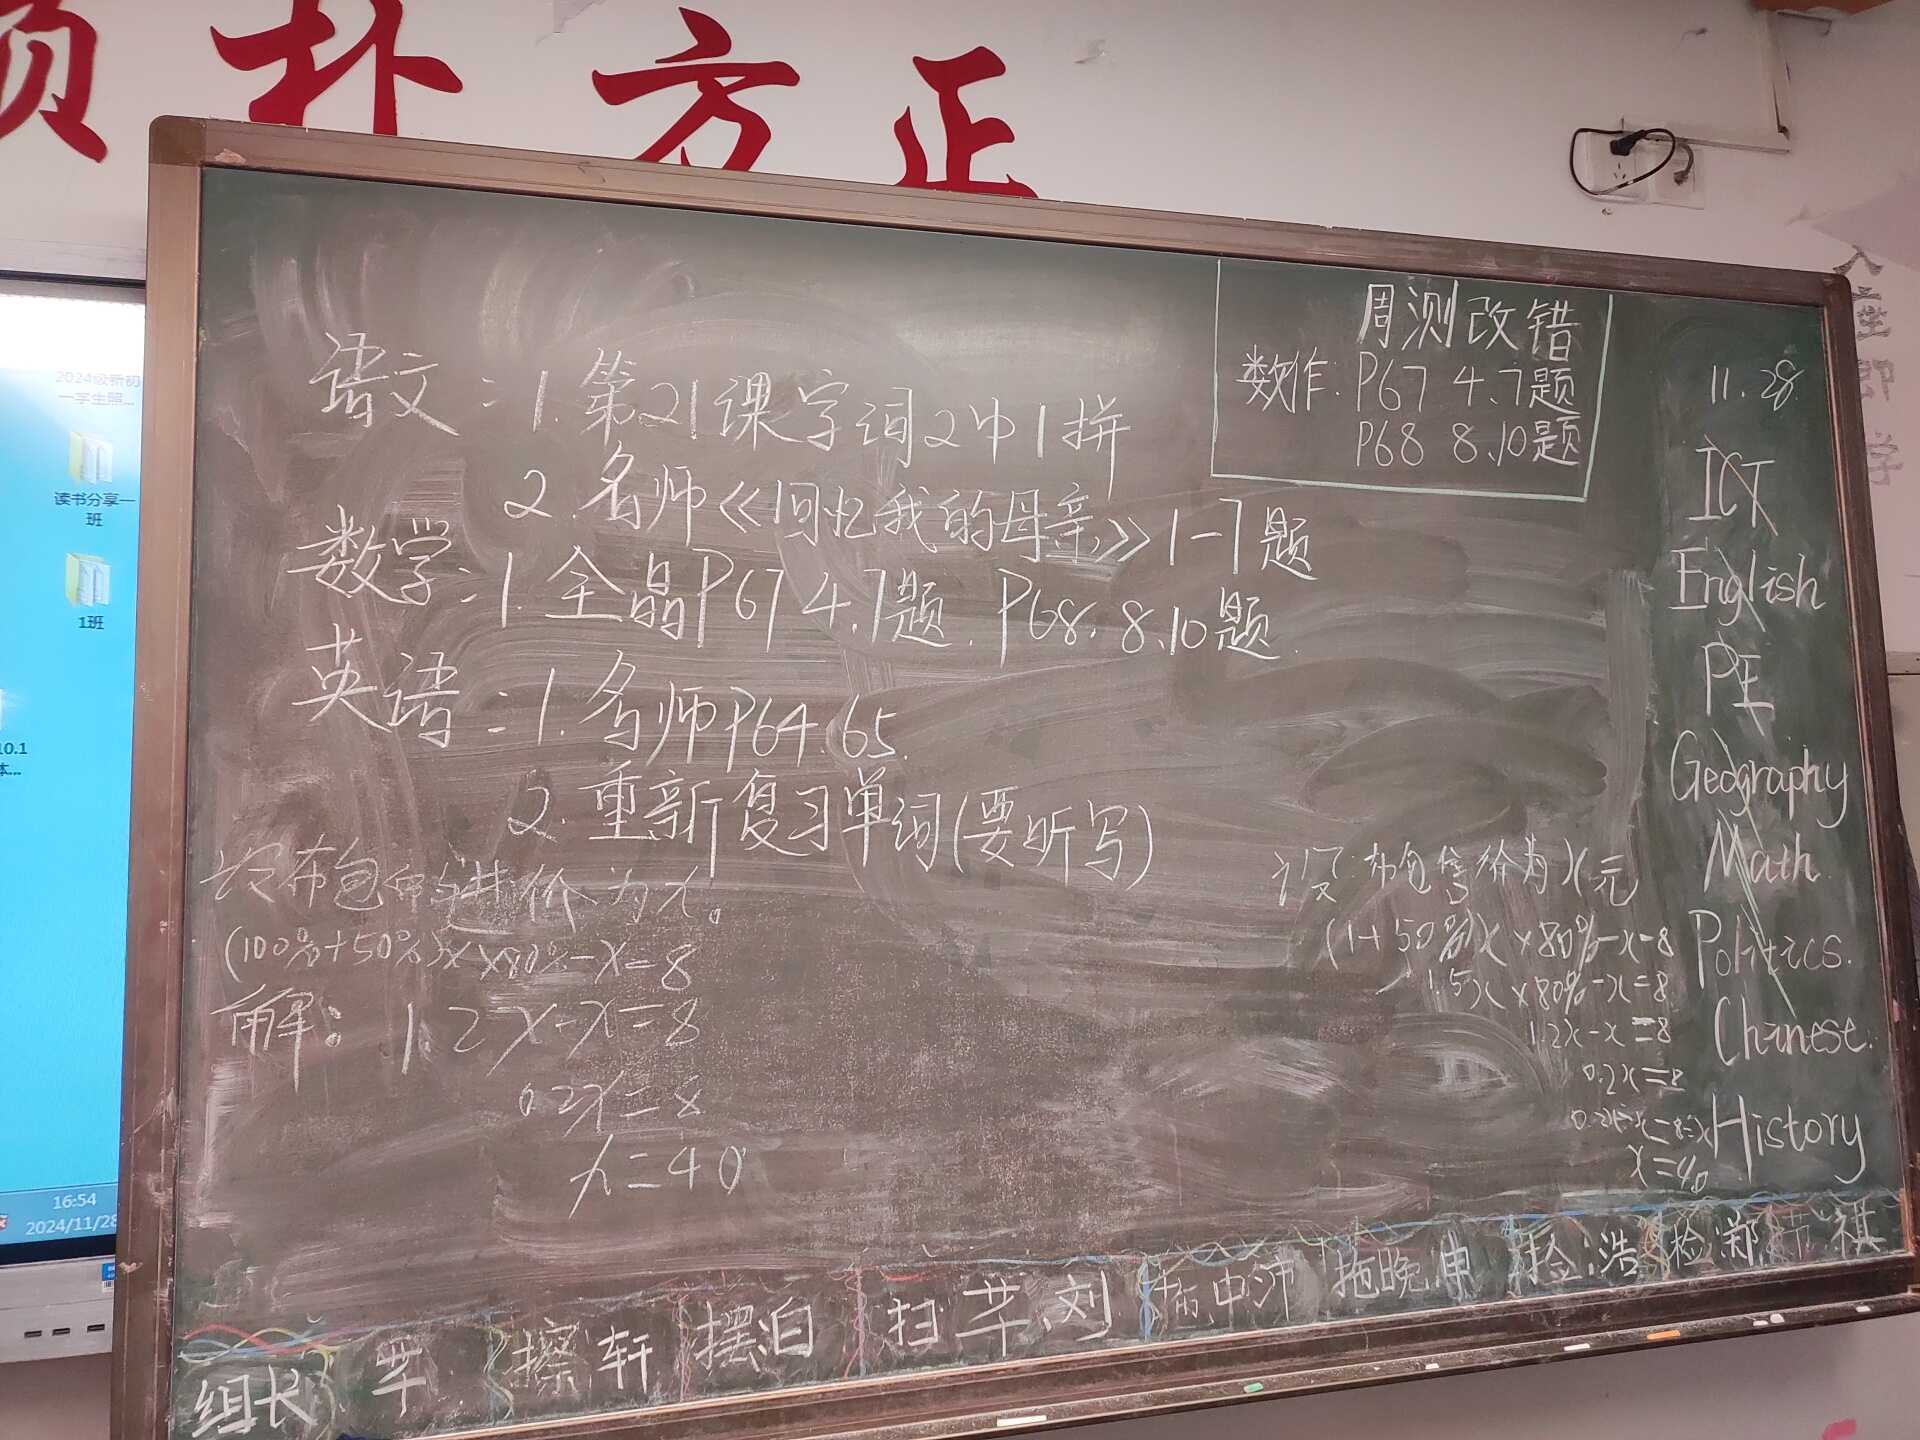 朴 方 正
周测改错
数作: P67 4、7题
P68 8、10题
语文: 1. 第21课字词2中1拼
2. 名师《回忆我的母亲》1-7题
数学: 1. 全晶P67 4、7题. P68. 8、10题.
英语: 1. 名师P64.65.
2. 重新复习单词(要听写)
布包的进价为x。
(100%+50%)x×80%-x=8
解: 1.2x-x=8
0.2x=8
x=40
设:布包售价为x元
(1+50%)x×80%-x=8
1.5x×80%-x=8
1.2x-x=8
0.2x=8
x=40
11.28
ICT
English
PE
Geography
Math
Politics.
Chinese.
History
组长 苹 擦 轩 摆泊 扫 苹、刘 拖晚 捡:浩 检 郑 祺
2024级新初
一学生照...
读书分享一
班
1班
10.1
体...
16:54
2024/11/28
入座即学